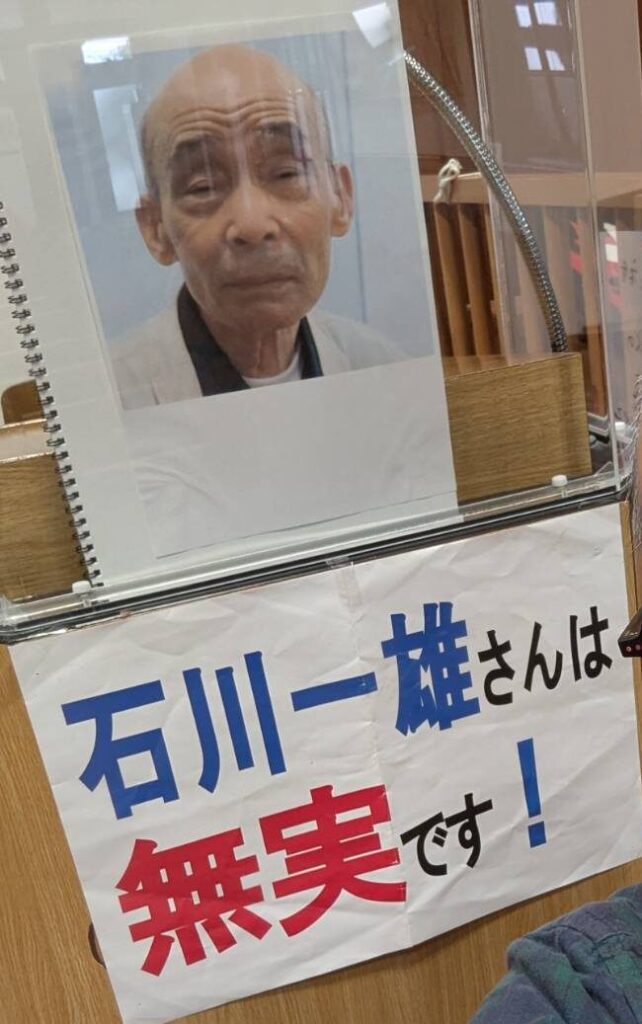 石川一雄さんは
無実です！